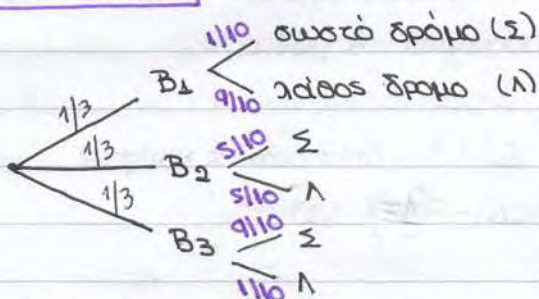 1/10 σωστό δρόμο (Σ)
1/3 B1
9/10 λάθος δρόμο (Λ)
1/3 B2 5/10 Σ
5/10 Λ
1/3 B3 9/10 Σ
1/10 Λ